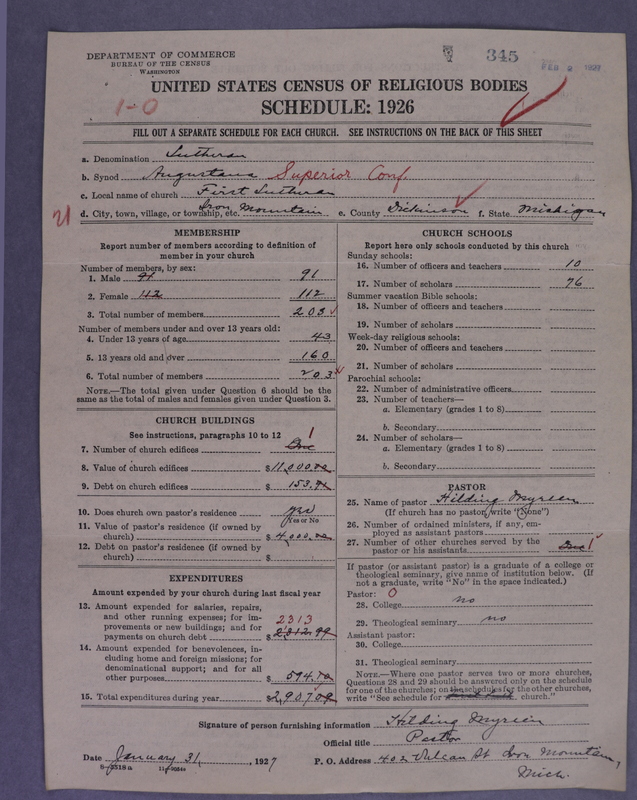 DEPARTMENT OF COMMERCE
BUREAU OF THE CENSUS
WASHINGTON
345
FEB 2 1927
UNITED STATES CENSUS OF RELIGIOUS BODIES
SCHEDULE: 1926
1-0
FILL OUT A SEPARATE SCHEDULE FOR EACH CHURCH. SEE INSTRUCTIONS ON THE BACK OF THIS SHEET
a. Denomination Lutheran
b. Synod Augustana Superior Conf.
c. Local name of church First Lutheran
21 d. City, town, village, or township, etc. Iron Mountain e. County Dickinson f. State Michigan
MEMBERSHIP
Report number of members according to definition of
member in your church
Number of members, by sex:
1. Male 91 91
2. Female 112 112
3. Total number of members 203
Number of members under and over 13 years old:
4. Under 13 years of age 43
5. 13 years old and over 160
6. Total number of members 203
NOTE.—The total given under Question 6 should be the
same as the total of males and females given under Question 3.
CHURCH BUILDINGS
See instructions, paragraphs 10 to 12
7. Number of church edifices One 1
8. Value of church edifices $11,000.00
9. Debt on church edifices $153.91
10. Does church own pastor's residence yes
Yes or No
11. Value of pastor's residence (if owned by
church) $4,000.00
12. Debt on pastor's residence (if owned by
church) $
EXPENDITURES
Amount expended by your church during last fiscal year
13. Amount expended for salaries, repairs,
and other running expenses; for im-
provements or new buildings; and for
payments on church debt 2313 $2,312.99
14. Amount expended for benevolences, in-
cluding home and foreign missions; for
denominational support; and for all
other purposes $594.10
15. Total expenditures during year $2,907.09
CHURCH SCHOOLS
Report here only schools conducted by this church
Sunday schools:
16. Number of officers and teachers 10
17. Number of scholars 76
Summer vacation Bible schools:
18. Number of officers and teachers
19. Number of scholars
Week-day religious schools:
20. Number of officers and teachers
21. Number of scholars
Parochial schools:
22. Number of administrative officers
23. Number of teachers—
a. Elementary (grades 1 to 8)
b. Secondary
24. Number of scholars—
a. Elementary (grades 1 to 8)
b. Secondary
PASTOR
25. Name of pastor Hilding Myreen
(If church has no pastor, write "None")
26. Number of ordained ministers, if any, em-
ployed as assistant pastors
27. Number of other churches served by the
pastor or his assistants One 1
If pastor (or assistant pastor) is a graduate of a college or
theological seminary, give name of institution below. (If
not a graduate, write "No" in the space indicated.)
Pastor: 0
28. College no
29. Theological seminary no
Assistant pastor:
30. College
31. Theological seminary
NOTE.—Where one pastor serves two or more churches,
Questions 28 and 29 should be answered only on the schedule
for one of the churches; on the schedules for the other churches,
write "See schedule for church."
Signature of person furnishing information Hilding Myreen
Official title Pastor
Date January 31, 1927 P. O. Address 402 Vulcan St Iron Mountain,
Mich.